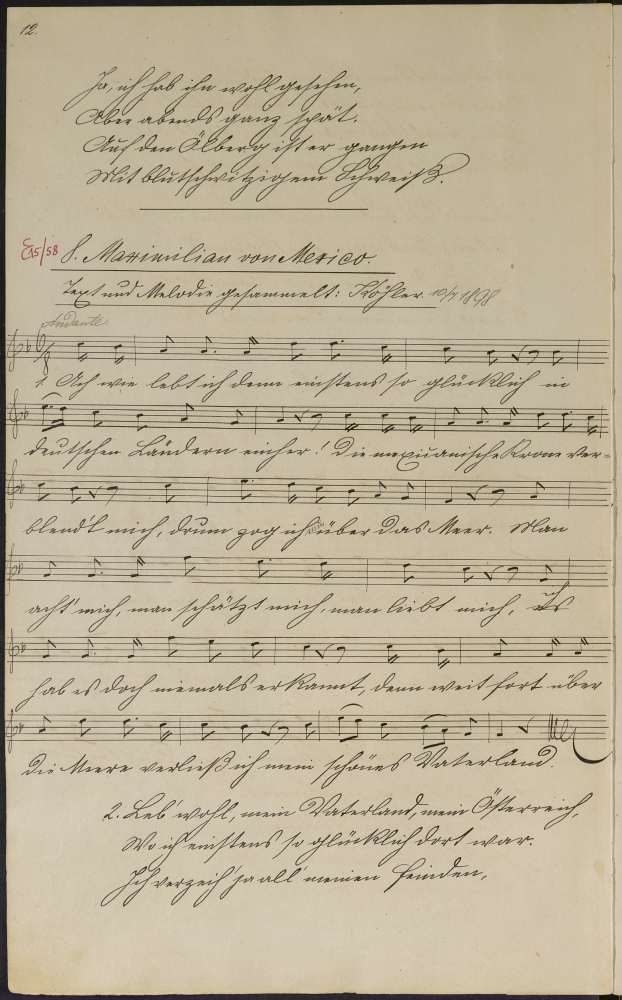 12.
Ja, ich hab ihn wohl gesehen,
Aber abends ganz spät.
Auf den Ölberg ist er gangen
Mit blutschwitzigem Schweiß.
E 15/58 8. Maximilian von Mexico.
Text und Melodie gesammelt: Köhler 10/7 1898
Andante
1. Ach wie lebt ich denn einstens so glücklich in
deutschen Ländern einher! Die mexicanische Krone ver-
blend't mich, drum zog ich über das Meer. Man
acht' mich, man schätzt mich, man liebt mich, ich
hab es doch niemals erkannt, denn weit fort über
die Meere verließ ich mein schönes Vaterland.
2. Leb' wohl, mein Vaterland, mein Österreich,
Wo ich einstens so glücklich dort war.
Ich verzeih' ja all' meinen Feinden,